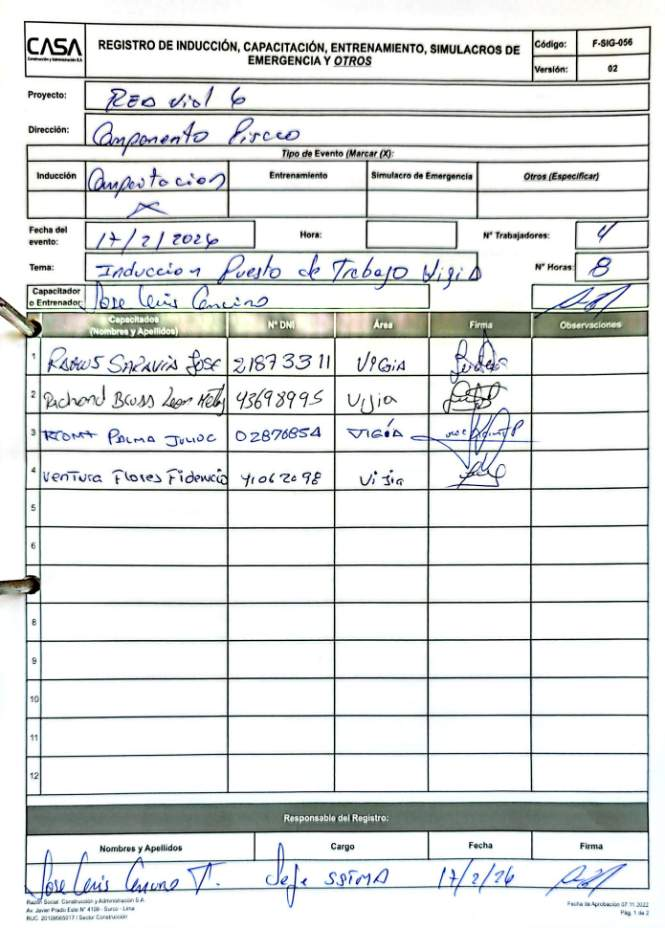 CASA
Construcción y Administración S.A.
REGISTRO DE INDUCCIÓN, CAPACITACIÓN, ENTRENAMIENTO, SIMULACROS DE
EMERGENCIA Y OTROS
Código: F-SIG-056
Versión: 02
Proyecto: RED Vial 6
Dirección: Campamento Pisco
Tipo de Evento (Marcar (X):
Inducción Capacitacion Entrenamiento Simulacro de Emergencia Otros (Especificar)
X
Fecha del evento: 17/2/2026 Hora: N° Trabajadores: 4
Tema: Induccion Puesto de Trabajo Vigia N° Horas: 8
Capacitador o Entrenador: Jose Luis
Capacitados (Nombres y Apellidos) N° DNI Área Firma Observaciones
1 RAMOS SARAVIA JOSE 21873311 VIGIA
2 Richard Leon 43698995 Vijia
3 PALMA 02876854 VIGÍA
4 Ventura Flores Fidencio 41062098 Vijia
5
6
8
9
10
11
12
Responsable del Registro:
Nombres y Apellidos Cargo Fecha Firma
Jose Luis T. Jefe SSIMA 17/2/26
Razón Social: Construcción y Administración S.A
Av. Javier Prado Este N° 4109 - Surco - Lima
RUC: 20109565017 / Sector Construcción
Fecha de Aprobación 07.11.2022
Pág. 1 de 2